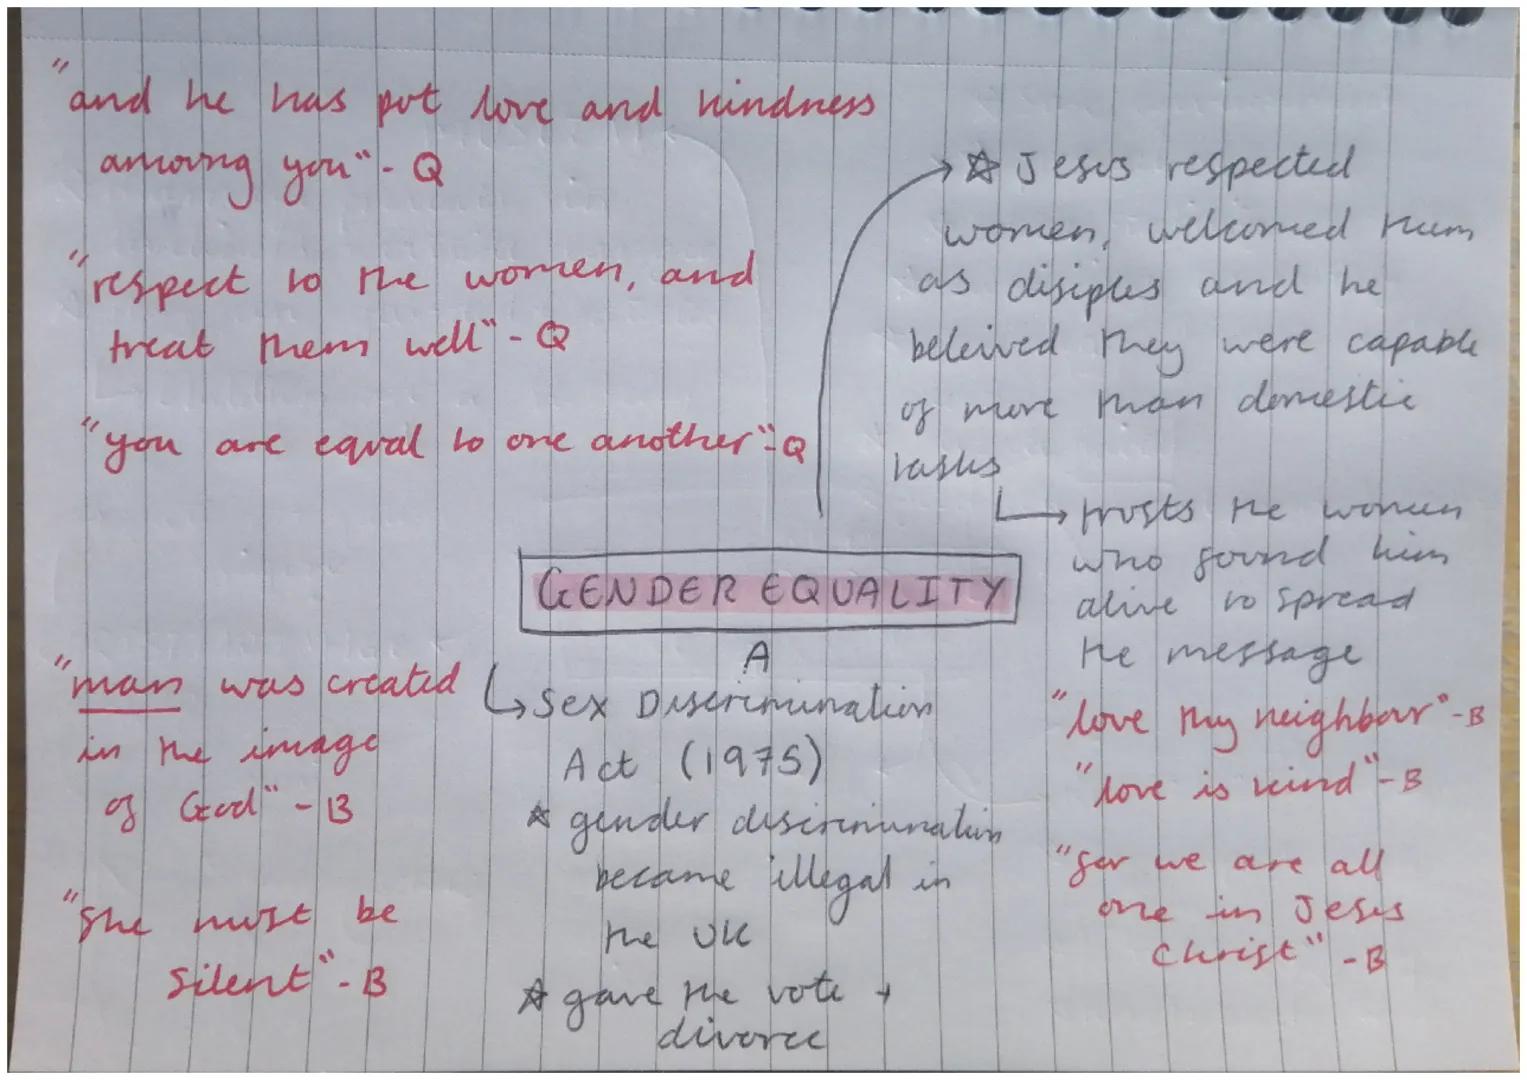 "and he has put love and kindness
among you" - Q
"respect to the women, and
treat them well" - Q
"you are equal to one another" - Q
☆ Jesus respected
women, welcomed them
as disiples and he
beleived they were capable
of more than domestic
tasks
↳ trusts the women
who found him
alive to spread
the message
GENDER EQUALITY
A
"man was created
in the image
of God" - B
"She must be
silent" - B
↳ Sex Discrimination
Act (1975)
☆ gender discrimination
became illegal in
the UK
☆ gave the vote +
divorce
"love thy neighbour" - B
"love is kind" - B
"for we are all
one in Jesus
Christ" - B